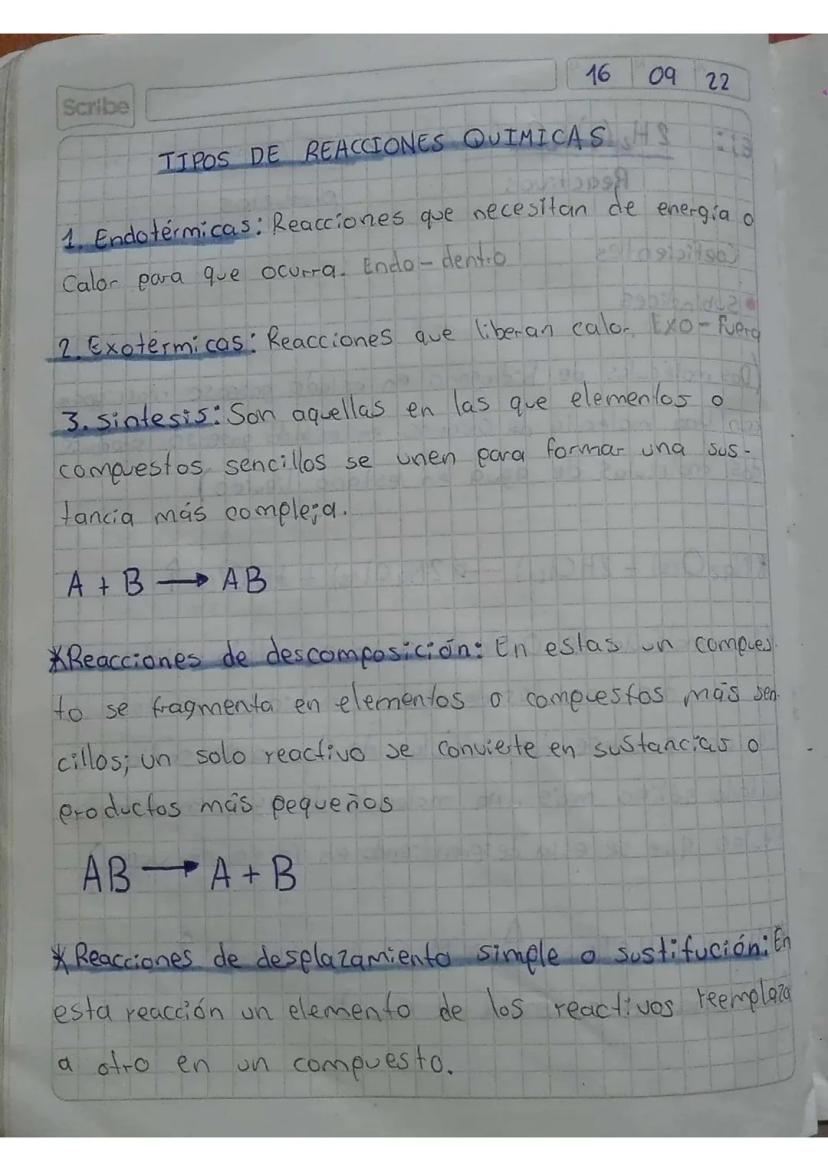 Scribe
16 09 22
TIPOS DE REACCIONES QUIMICAS
1. Endotérmicas: Reacciones que necesitan de energía o
Calor para que ocurra. Endo-dentro
2. Exotérmicas: Reacciones que liberan calor. Exo-Fuera
3. Sintesis: Son aquellas en las que elementos o
compuestos sencillos se unen para formar una sus-
tancia más compleja.
A + B → AB
*Reacciones de descomposición: En estas un compues
to se fragmenta en elementos o compuestos más sen
cillos; un solo reactivo se convierte en sustancias o
productos más pequeños
AB → A + B
*Reacciones de desplazamiento simple o sustitución: En
esta reacción un elemento de los reactivos reemplaza
a otro en un compuesto.